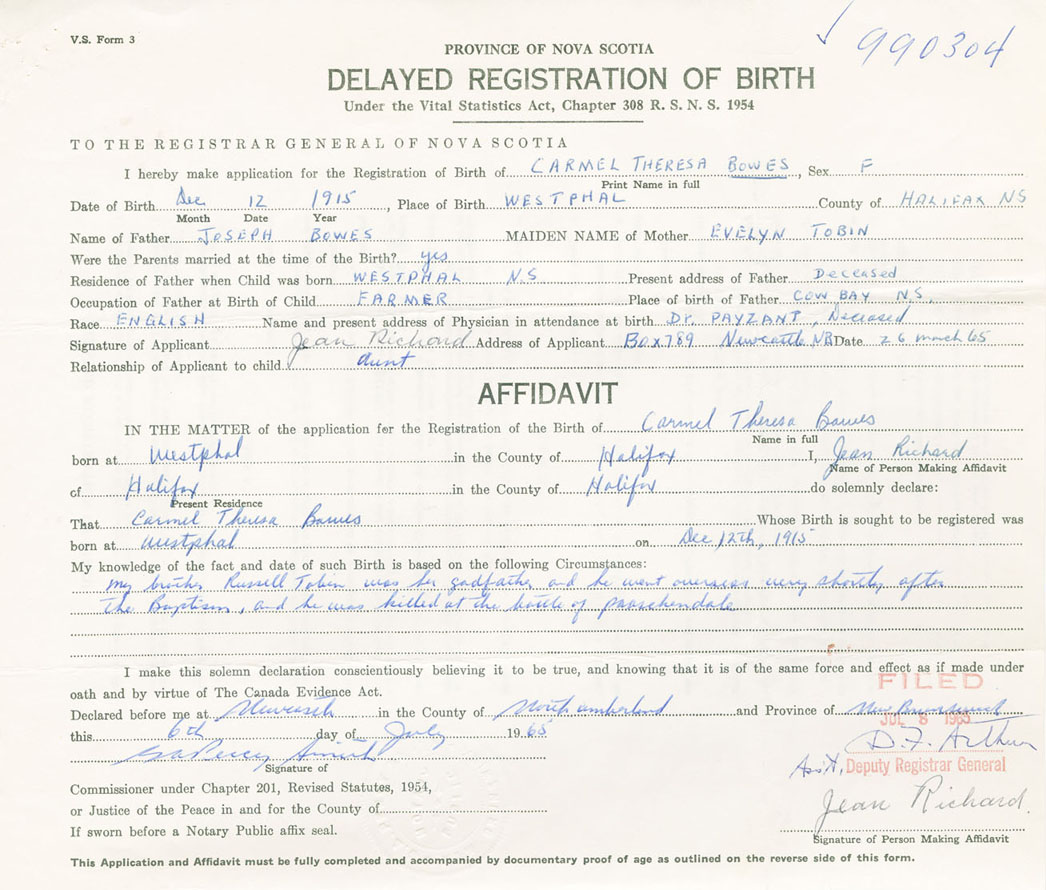 V.S. Form 3
990304
PROVINCE OF NOVA SCOTIA
DELAYED REGISTRATION OF BIRTH
Under the Vital Statistics Act, Chapter 308 R. S. N. S. 1954
TO THE REGISTRAR GENERAL OF NOVA SCOTIA
I hereby make application for the Registration of Birth of CARMEL THERESA BOWES, Sex F
Print Name in full
Date of Birth Dec 12 1915, Place of Birth WESTPHAL County of HALIFAX NS
Month Date Year
Name of Father JOSEPH BOWES MAIDEN NAME of Mother EVELYN TOBIN
Were the Parents married at the time of the Birth? yes
Residence of Father when Child was born WESTPHAL N.S Present address of Father Deceased
Occupation of Father at Birth of Child FARMER Place of birth of Father COW BAY N.S.
Race ENGLISH Name and present address of Physician in attendance at birth Dr. PAYZANT, Deceased
Signature of Applicant Jean Richard Address of Applicant Box 789 Newcastle NB Date 26 march 65
Relationship of Applicant to child aunt
AFFIDAVIT
IN THE MATTER of the application for the Registration of the Birth of Carmel Theresa Bowes
Name in full
born at Westphal in the County of Halifax I, Jean Richard
Name of Person Making Affidavit
of Halifax in the County of Halifax do solemnly declare:
Present Residence
That Carmel Theresa Bowes Whose Birth is sought to be registered was
born at Westphal on Dec, 12th, 1915
My knowledge of the fact and date of such Birth is based on the following Circumstances:
my brother Russell Tobin was her godfather and he went overseas very shortly after
the Baptism, and he was killed at the battle of passchendale
I make this solemn declaration conscientiously believing it to be true, and knowing that it is of the same force and effect as if made under
oath and by virtue of The Canada Evidence Act.
FILED
Declared before me at Newcastle in the County of Northumberland and Province of New Brunswick
JUL 8 1965
this 6th day of July 1965
D. F. Arthur
Smith
Signature of
Asst, Deputy Registrar General
Commissioner under Chapter 201, Revised Statutes, 1954,
or Justice of the Peace in and for the County of
Jean Richard.
If sworn before a Notary Public affix seal.
Signature of Person Making Affidavit
This Application and Affidavit must be fully completed and accompanied by documentary proof of age as outlined on the reverse side of this form.